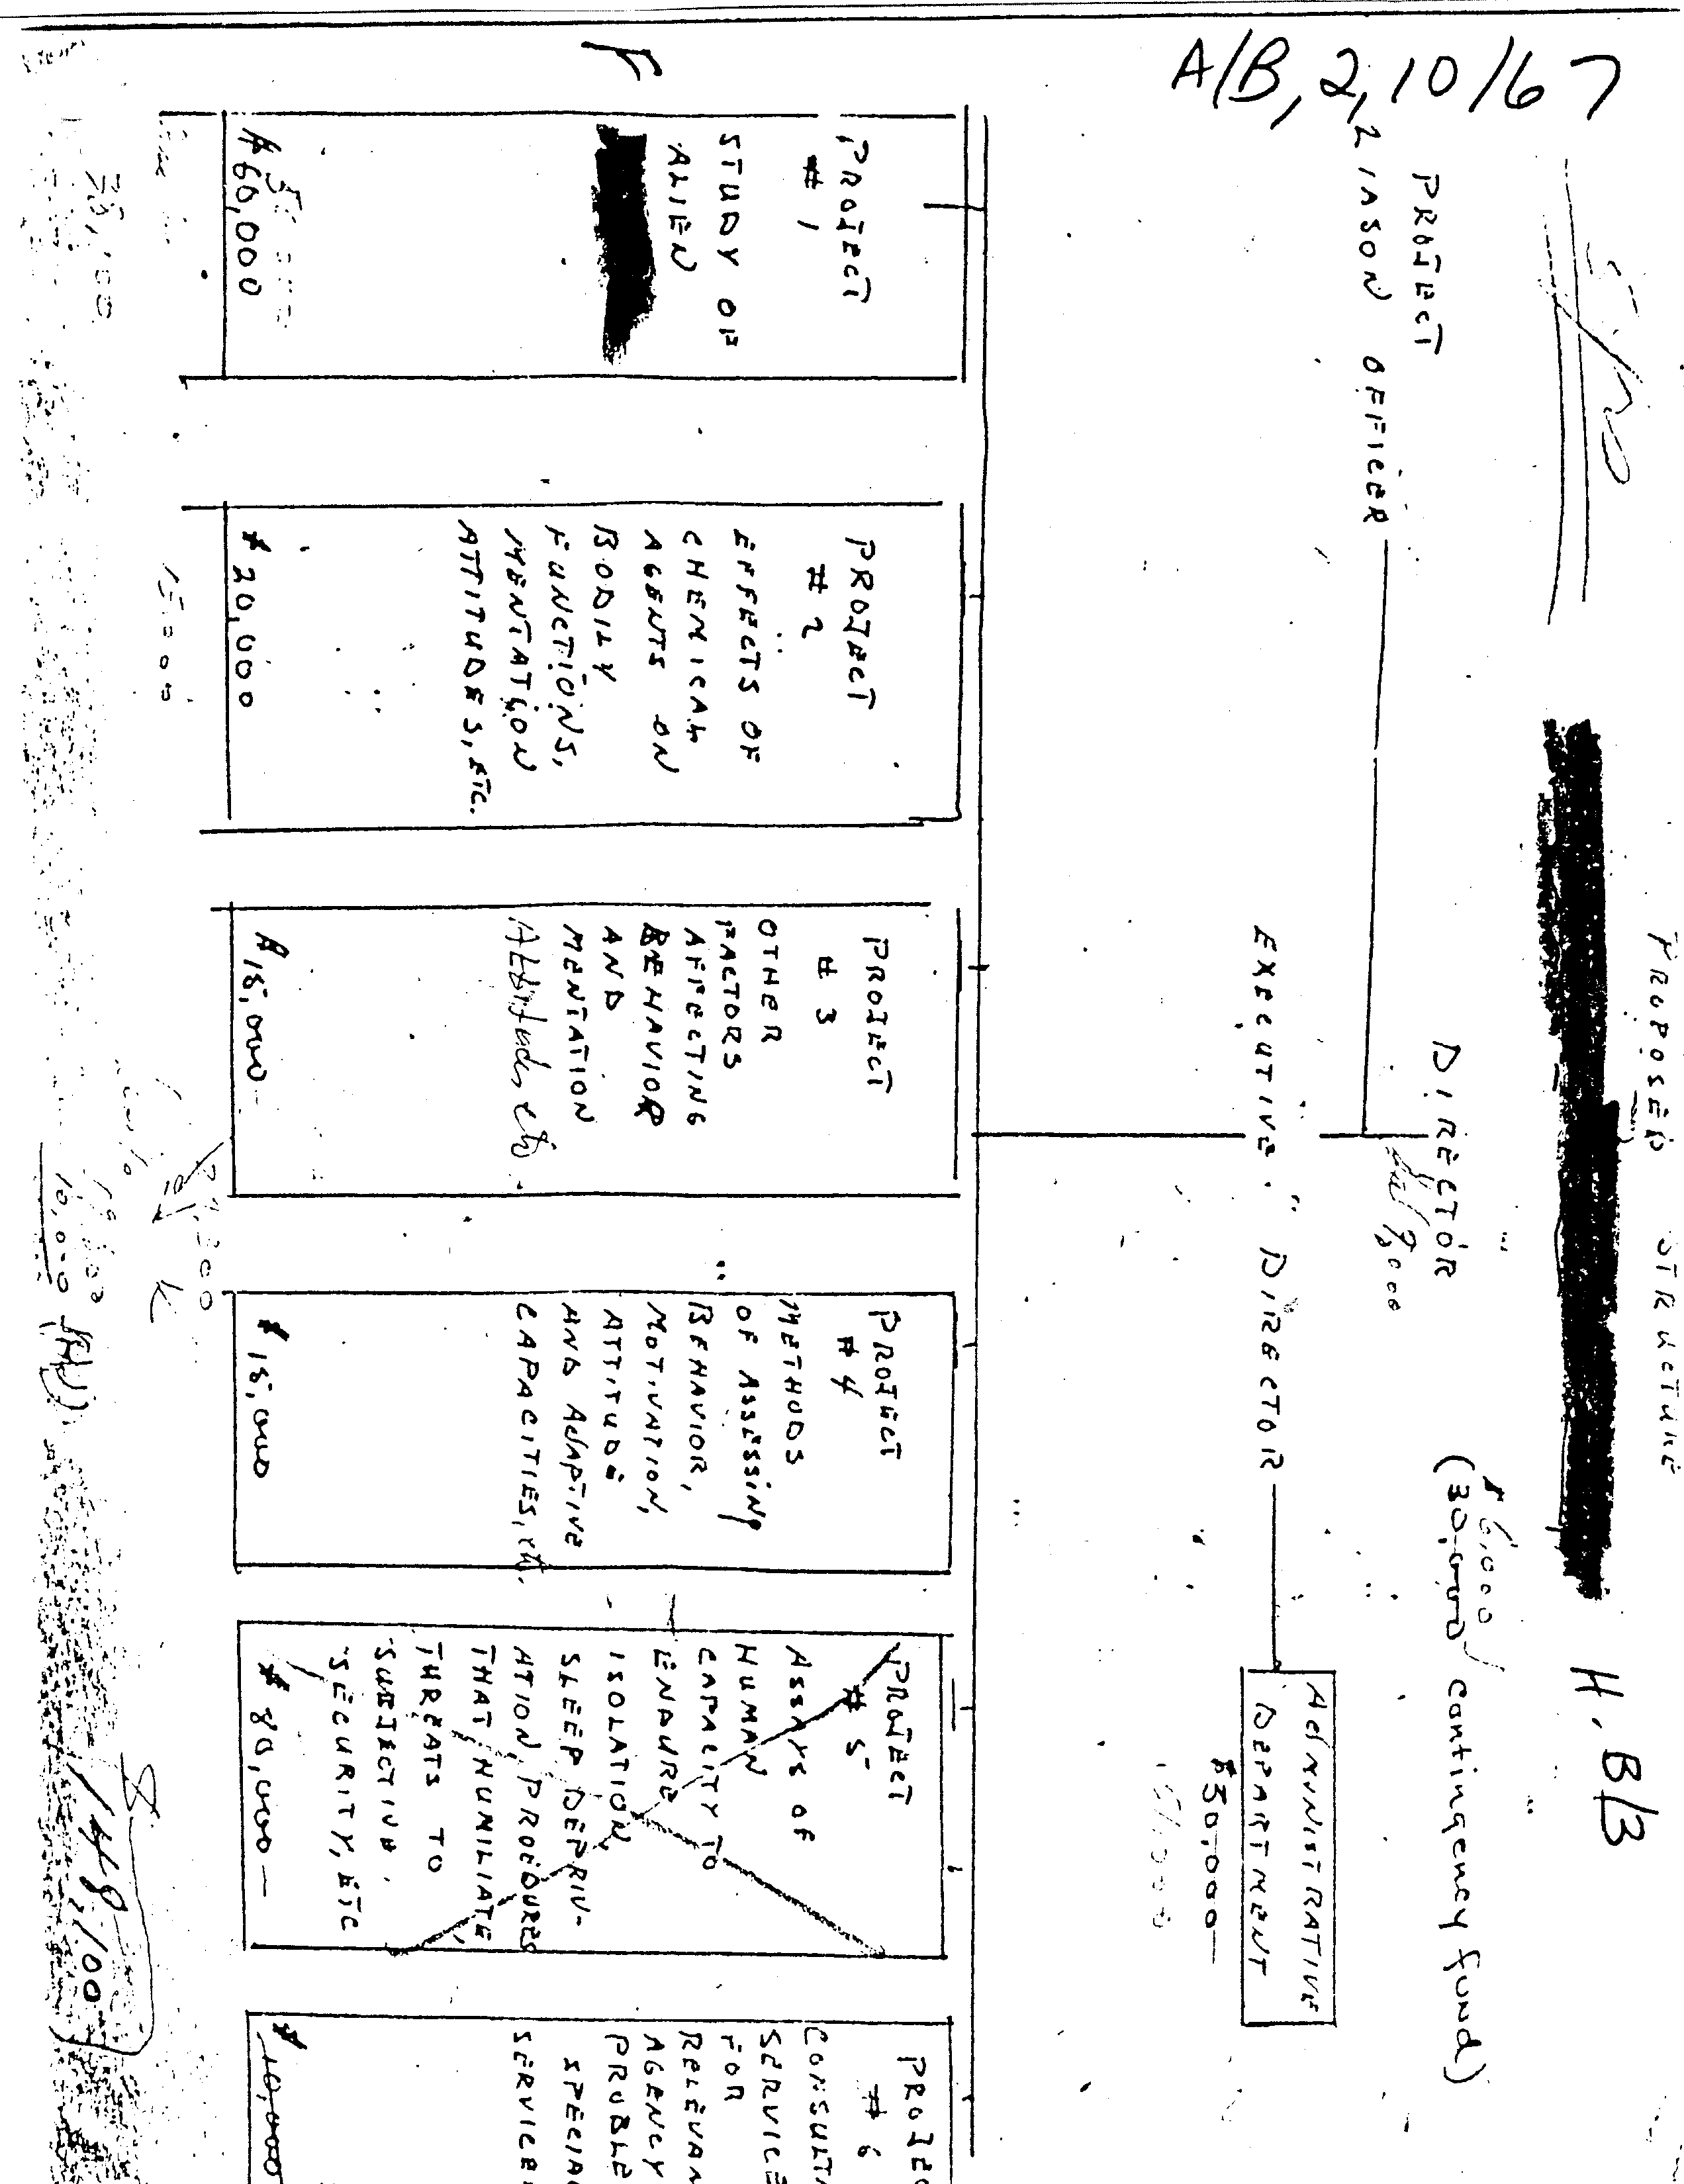 A/B, 2, 10/67
PROPOSED STRUCTURE
H. B/3
PROJECT
LIASON OFFICER
DIRECTOR
$6,000
(30,000 contingency fund)
EXECUTIVE DIRECTOR
ADMINISTRATIVE
DEPARTMENT
$30,000—
PROJECT
# 1
STUDY OF
ALIEN
$60,000
PROJECT
# 2
EFFECTS OF
CHEMICAL
AGENTS ON
BODILY
FUNCTIONS,
MENTATION
ATTITUDES, ETC.
$20,000
15000
PROJECT
# 3
OTHER
FACTORS
AFFECTING
BEHAVIOR
AND
MENTATION
Attitudes etc.
$15,000-
PROJECT
# 4
METHODS
OF ASSESSING
BEHAVIOR,
MOTIVATION,
ATTITUDE
AND ADAPTIVE
CAPACITIES, etc.
$15,000
PROJECT
# 5
ASSAYS OF
HUMAN
CAPACITY TO
ENDURE
ISOLATION,
SLEEP DEPRIV-
ATION, PROCEDURES
THAT HUMILIATE,
THREATS TO
SUBJECTIVE
SECURITY, ETC
$80,000—
PROJEC
# 6
CONSULTA
SERVICE
FOR
RELEVAN
AGENCY
PROBLE
SPECIA
SERVICE
$10,000
10,000
148,100